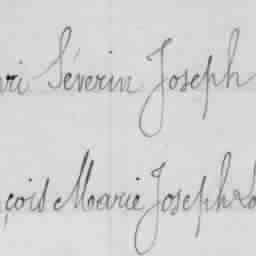 ri Séverin Joseph
çois Marie Joseph